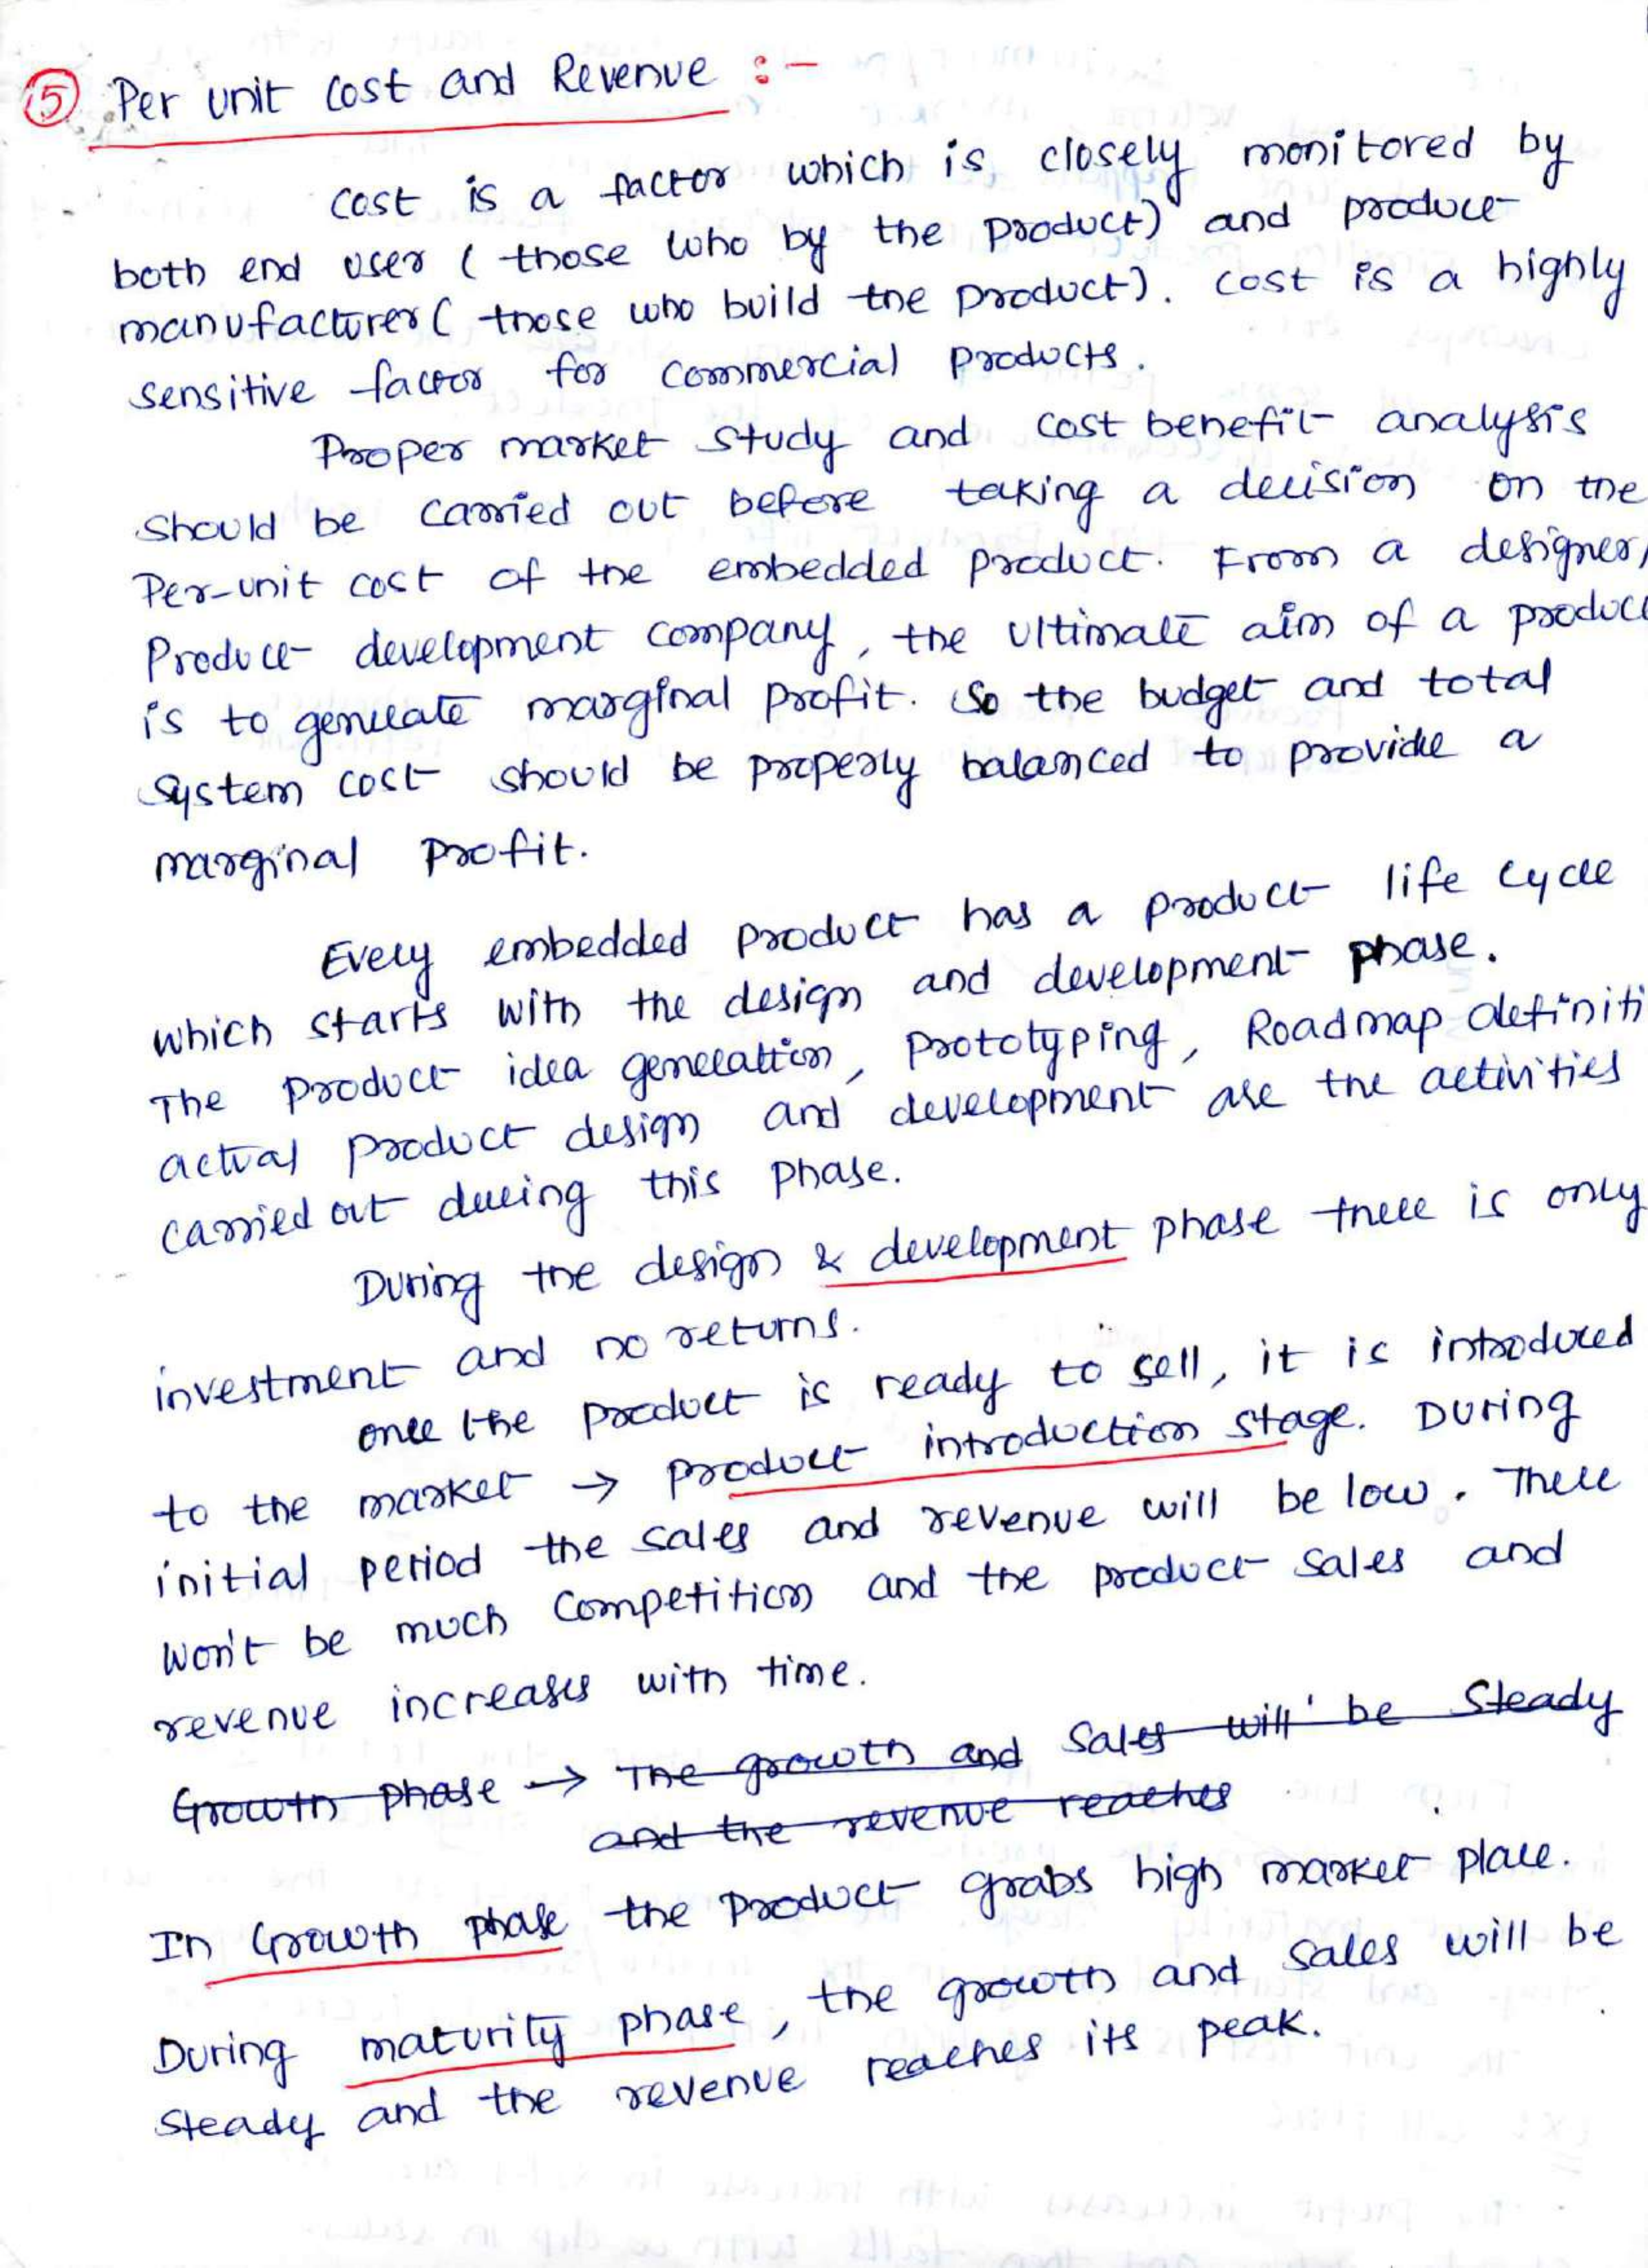 ⑤ Per unit cost and Revenue :-
cost is a factor which is closely monitored by
both end user ( those who by the product) and product
manufacturer ( those who build the product). Cost is a highly
sensitive factor for commercial products.
Proper market study and cost benefit analysis
should be carried out before taking a decision on the
Per-unit cost of the embedded product. From a designer/
Product development company, the ultimate aim of a produc
is to generate marginal profit. So the budget and total
System cost should be properly balanced to provide a
marginal profit.
Every embedded product has a product life cycle
which starts with the design and development phase.
The product idea generation, prototyping, Roadmap definiti
actual product design and development are the activities
carried out during this phase.
During the design & development phase there is only
investment and no returns.
once the product is ready to sell, it is introduced
to the market → product introduction stage. During
initial period the sales and revenue will be low. There
won't be much competition and the product sales and
revenue increases with time.
Growth phase → The growth and sales will be steady
and the revenue reaches
In Growth phase the product grabs high market place.
During maturity phase, the growth and sales will be
steady and the revenue reaches its peak.